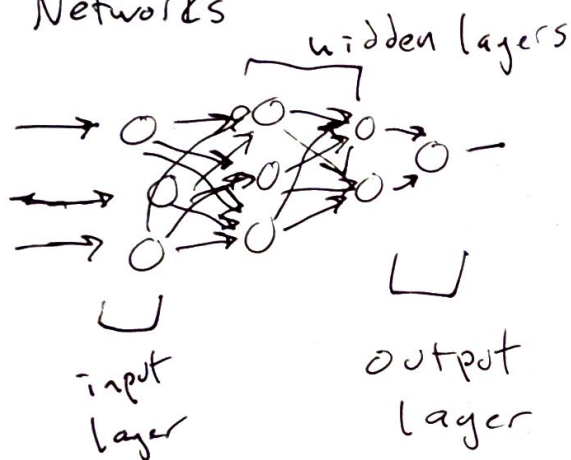 Networks
hidden layers
input
layer
output
layer